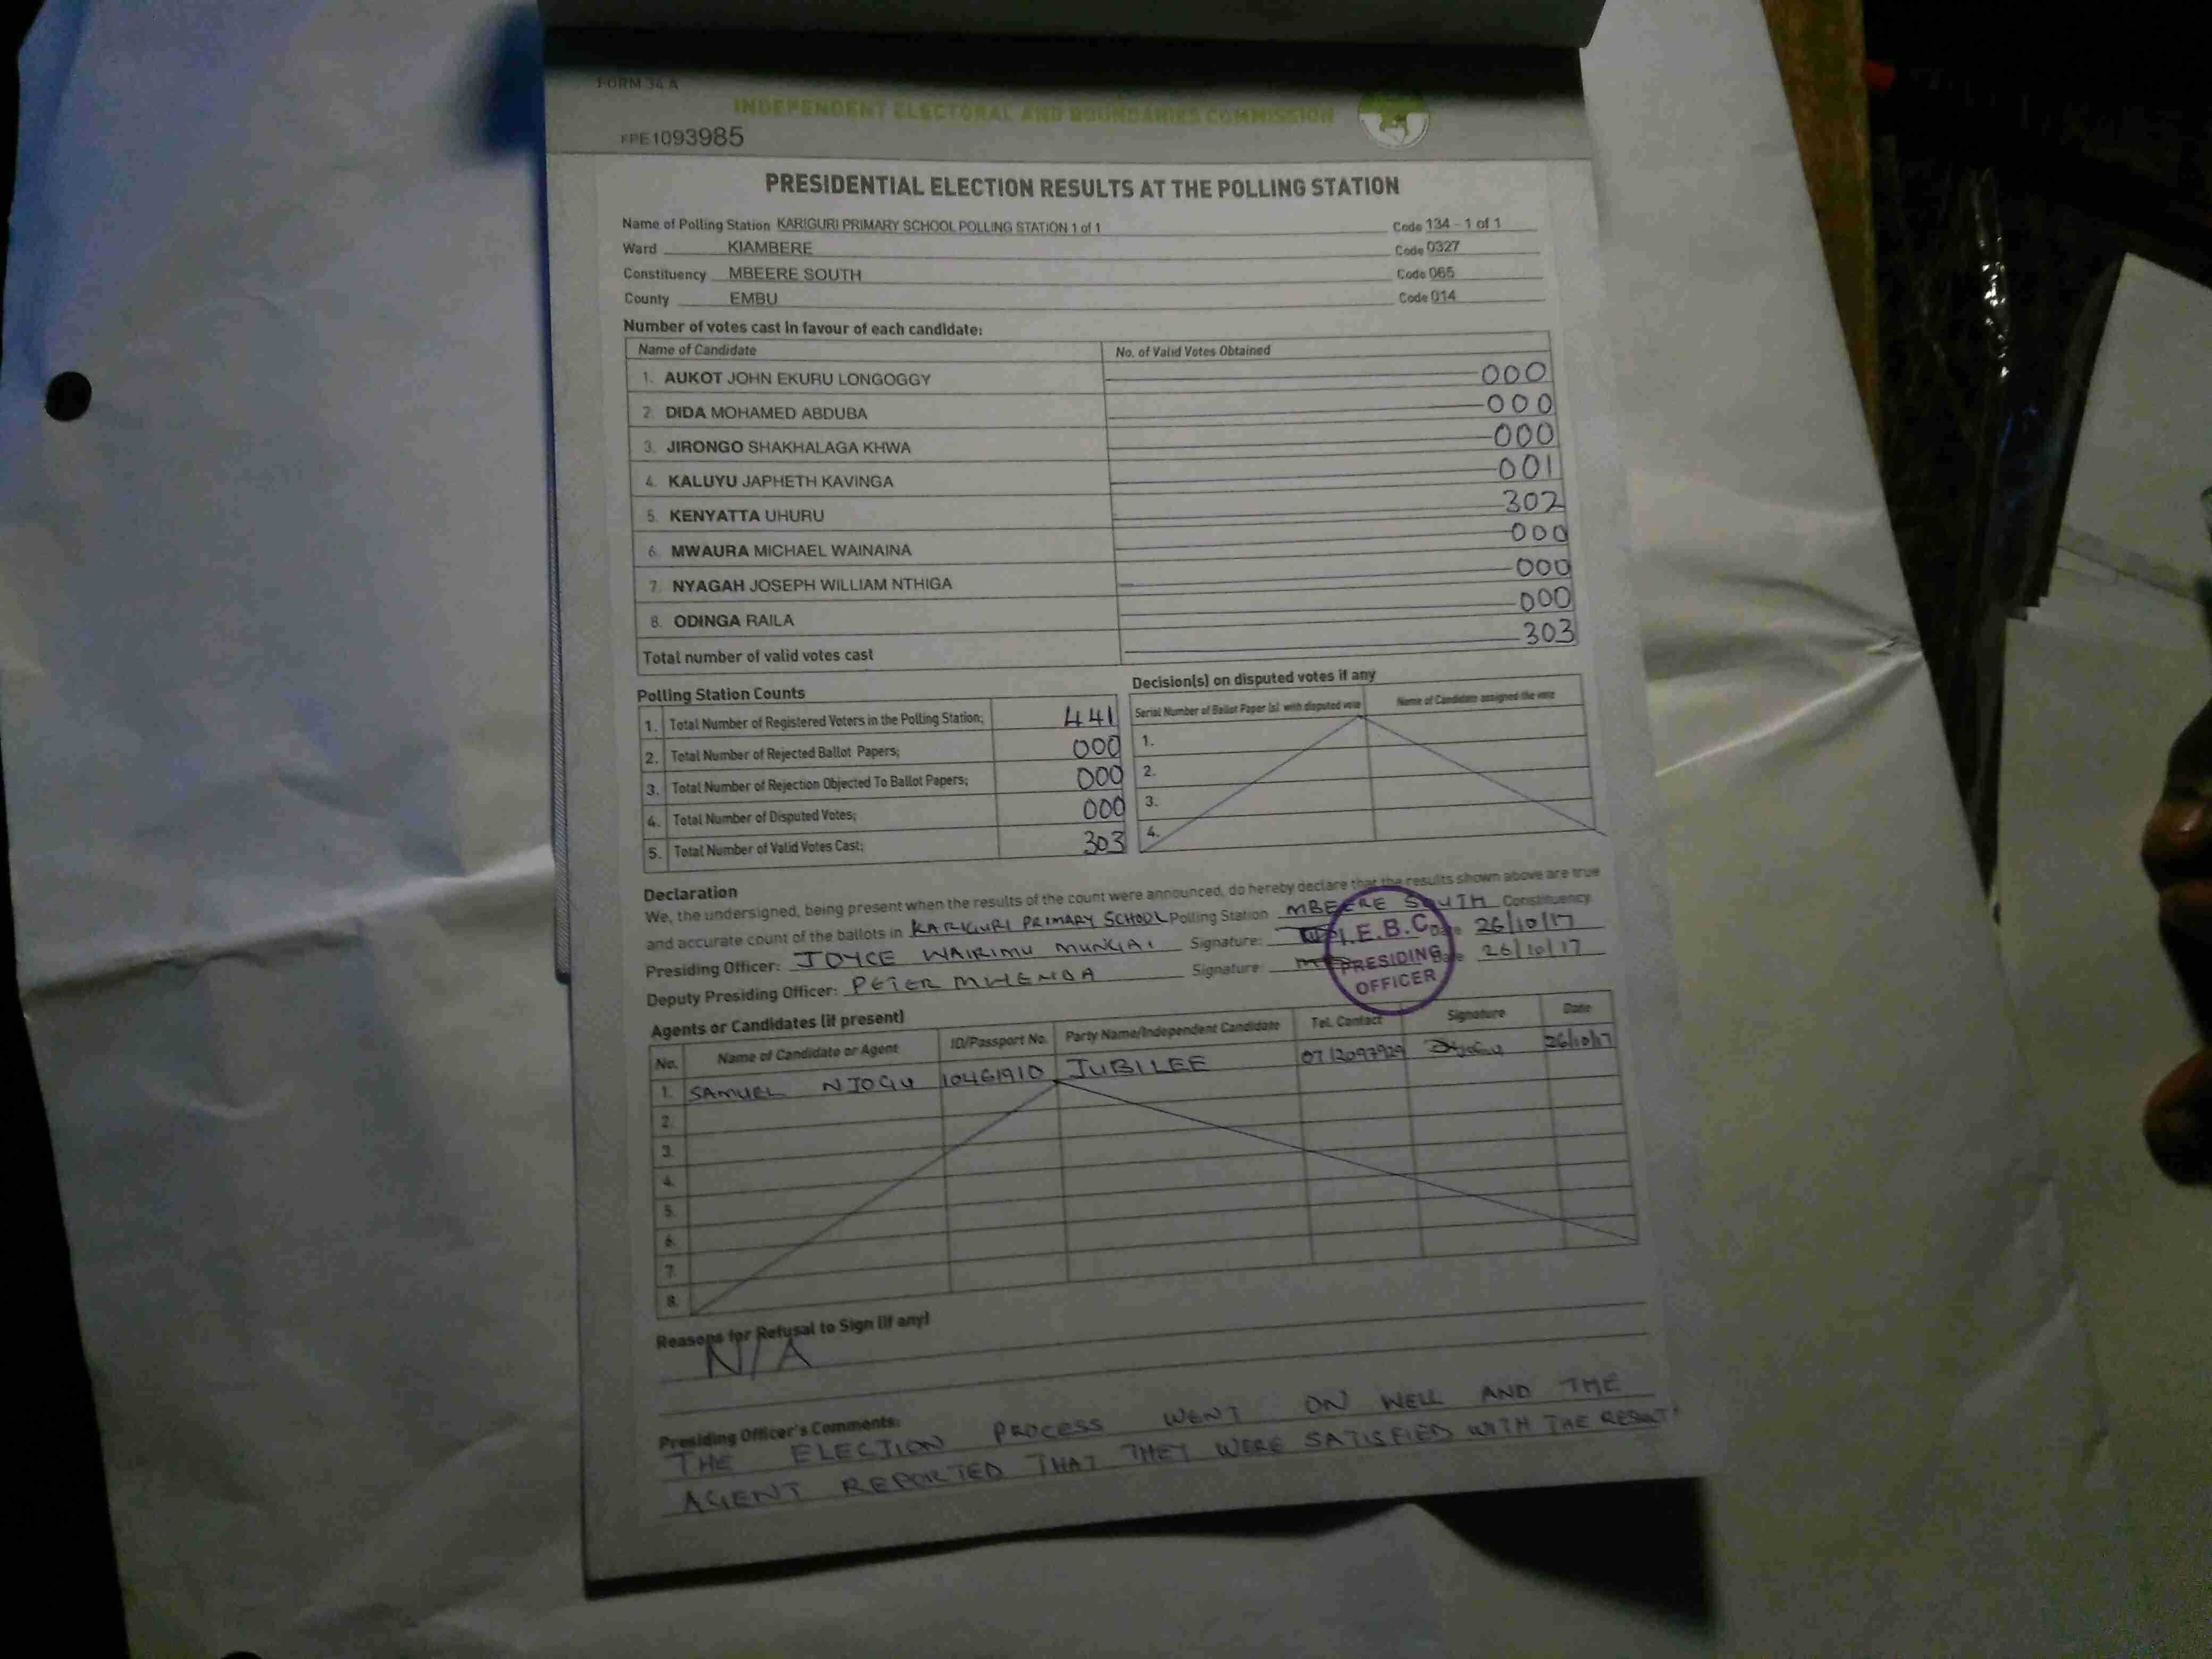 FORM 34 A
INDEPENDENT ELECTORAL AND BOUNDARIES COMMISSION
FPE1093985
PRESIDENTIAL ELECTION RESULTS AT THE POLLING STATION
Name of Polling Station KARIGURI PRIMARY SCHOOL POLLING STATION 1 of 1 Code 134 - 1 of 1
Ward KIAMBERE Code 0327
Constituency MBEERE SOUTH Code 065
County EMBU Code 014
Number of votes cast in favour of each candidate:
Name of Candidate No. of Valid Votes Obtained
1. AUKOT JOHN EKURU LONGOGGY 000
2. DIDA MOHAMED ABDUBA 000
3. JIRONGO SHAKHALAGA KHWA 000
4. KALUYU JAPHETH KAVINGA 001
5. KENYATTA UHURU 302
6. MWAURA MICHAEL WAINAINA 000
7. NYAGAH JOSEPH WILLIAM NTHIGA 000
8. ODINGA RAILA 000
Total number of valid votes cast 303
Polling Station Counts
1. Total Number of Registered Voters in the Polling Station; 441
2. Total Number of Rejected Ballot Papers; 000
3. Total Number of Rejection Objected To Ballot Papers; 000
4. Total Number of Disputed Votes; 000
5. Total Number of Valid Votes Cast; 303
Decision(s) on disputed votes if any
Serial Number of Ballot Paper (s) with disputed vote Name of Candidate assigned the vote
1.
2.
3.
4.
Declaration
We, the undersigned, being present when the results of the count were announced, do hereby declare that the results shown above are true
and accurate count of the ballots in KARIGURI PRIMARY SCHOOL Polling Station MBEERE SOUTH Constituency
Presiding Officer: JOYCE WAIRIMU MUNGAI Signature: Date 26/10/17
Deputy Presiding Officer: PETER MWENDA Signature: Date 26/10/17
I.E.B.C
PRESIDING
OFFICER
Agents or Candidates (if present)
No. Name of Candidate or Agent ID/Passport No. Party Name/Independent Candidate Tel. Contact Signature Date
1. SAMUEL NJOGU 10461910 JUBILEE 0713097929 26/10/17
2.
3.
4.
5.
6.
7.
8.
Reasons for Refusal to Sign (if any)
N/A
Presiding Officer's Comments:
THE ELECTION PROCESS WENT ON WELL AND THE
AGENT REPORTED THAT THEY WERE SATISFIED WITH THE RESULT